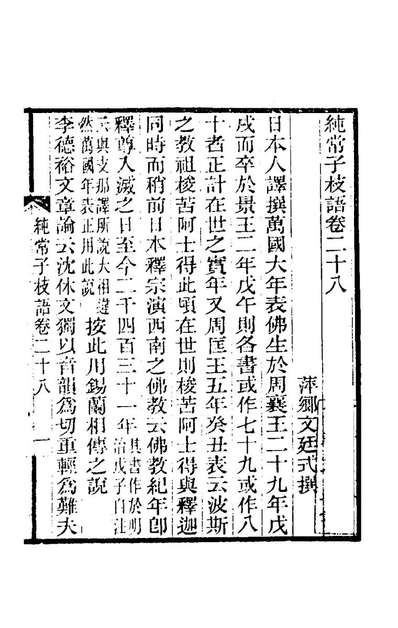 純常子枝語卷二十八
萍鄉文廷式撰
日本人譯撰萬國大年表佛生於周襄王二十九年戊
戌而卒於景王二年戊午則各書或作七十九或作八
十者正計在世之實年又周匡王五年癸丑表云波斯
之教祖梭苦阿士得此頃在世則梭苦阿士得與釋迦
同時而稍前日本釋宗演西南之佛教云佛教紀年卽
釋尊入滅之日至今二千四百三十一年其書作於明
治戊子自注
云與支那譯所說大相違
然萬國年表正用此說按此用錫蘭相傳之說
李德裕文章論云沈休文獨以音韻為切重輕為難夫
純常子枝語卷二十八
一